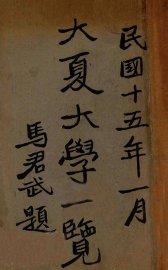 民國十五年一月
大夏大學一覽
馬君武題